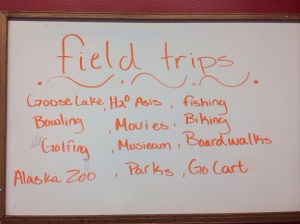 field trips
Goose Lake, H2O Asis, fishing
Bowling, Movies, Biking
Golfing, Museam, Boardwalks
Alaska Zoo, Parks, Go Cart